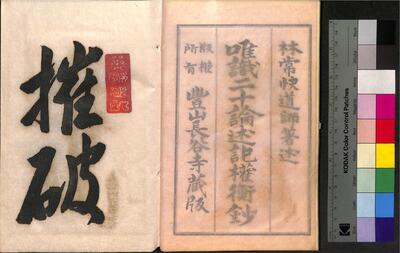 林常快道師著述
唯識二十論述記權衡鈔
版權
所有
豐山長谷寺蔵版
摧破
KODAK Color Control Patches